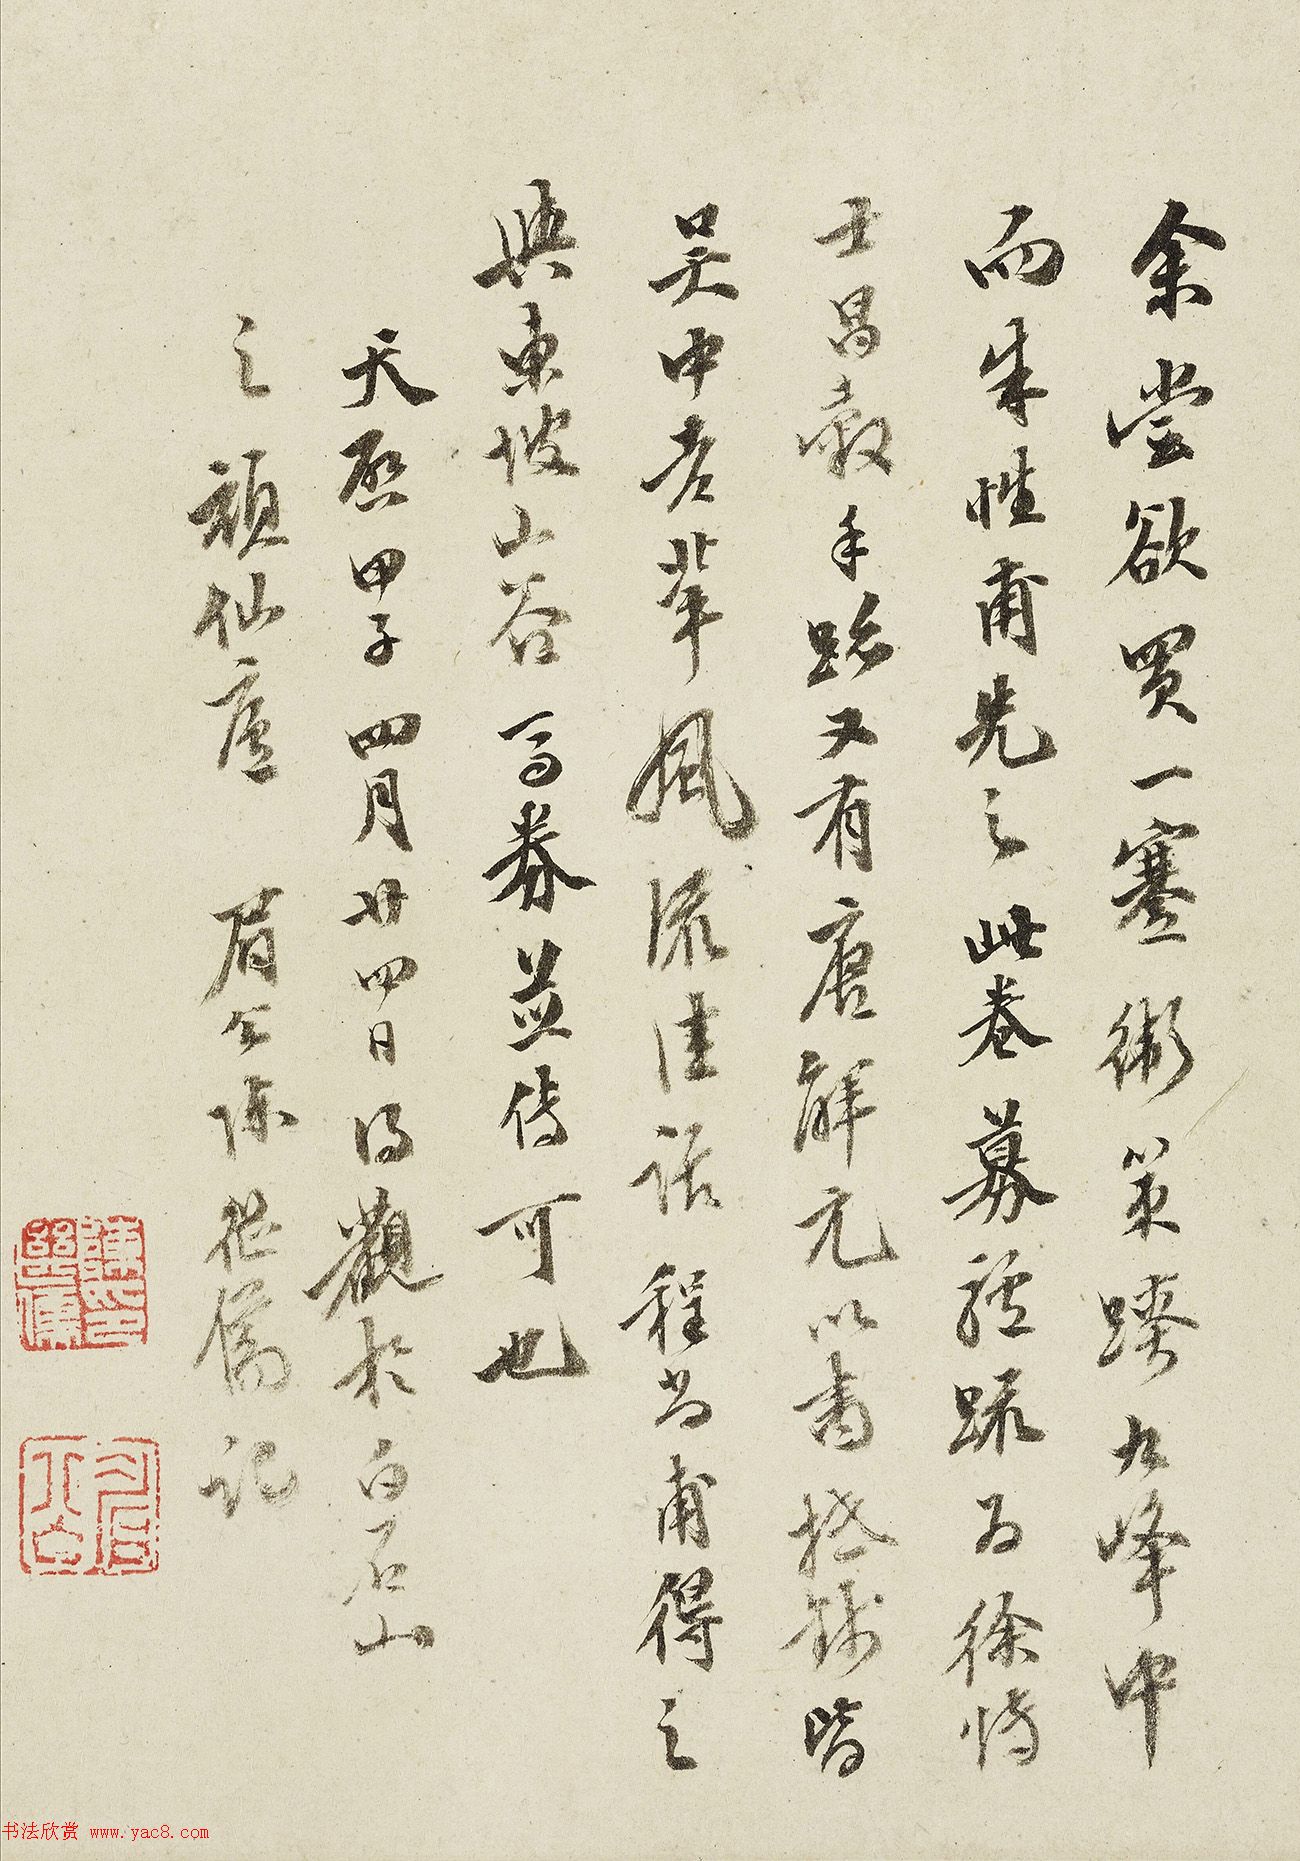 余嘗欲買一蹇衛策蹻九峰中
而朱性甫先之此卷募驢疏為徐博
士昌穀手跡又有唐解元以書抵錢皆
吳中老輩風流佳話程尚甫得之
與東坡山谷馬券並傳可也
天啟甲子四月廿四日得觀於白石山
之頑仙廬 眉公陳繼儒記
书法欣赏 www.yac8.com